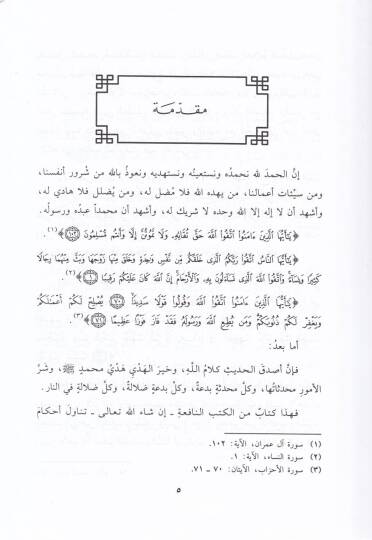 مقدّمَة
إنَّ الحمدَ لله نحمدُه ونستعينُه ونستهديه ونعوذُ بالله من شُرور أنفسنا،
ومن سيِّئات أعمالنا، من يهده الله فلا مُضل له، ومن يُضلل فلا هادي له،
وأشهد أن لا إله إلا الله وحده لا شريك له، وأشهد أن محمداً عبدُه ورسولُه.
﴿يَٰٓأَيُّهَا ٱلَّذِينَ ءَامَنُوا۟ ٱتَّقُوا۟ ٱللَّهَ حَقَّ تُقَاتِهِۦ وَلَا تَمُوتُنَّ إِلَّا وَأَنتُم مُّسْلِمُونَ ١٠٢﴾(١).
﴿يَٰٓأَيُّهَا ٱلنَّاسُ ٱتَّقُوا۟ رَبَّكُمُ ٱلَّذِى خَلَقَكُم مِّن نَّفْسٍ وَٰحِدَةٍ وَخَلَقَ مِنْهَا زَوْجَهَا وَبَثَّ مِنْهُمَا رِجَالًا
كَثِيرًا وَنِسَآءً وَٱتَّقُوا۟ ٱللَّهَ ٱلَّذِى تَسَآءَلُونَ بِهِۦ وَٱلْأَرْحَامَ إِنَّ ٱللَّهَ كَانَ عَلَيْكُمْ رَقِيبًا ١﴾(٢).
﴿يَٰٓأَيُّهَا ٱلَّذِينَ ءَامَنُوا۟ ٱتَّقُوا۟ ٱللَّهَ وَقُولُوا۟ قَوْلًا سَدِيدًا ٧٠ يُصْلِحْ لَكُمْ أَعْمَٰلَكُمْ
وَيَغْفِرْ لَكُمْ ذُنُوبَكُمْ وَمَن يُطِعِ ٱللَّهَ وَرَسُولَهُۥ فَقَدْ فَازَ فَوْزًا عَظِيمًا ٧١﴾(٣).
أما بعدُ:
فإنَّ أصدقَ الحديثِ كلامُ اللَّهِ، وخيرَ الهَدْيِ هَدْيُ محمدٍ ﷺ، وشرَّ
الأمورِ محدثاتُها، وكلَّ محدثةٍ بدعةٌ، وكلَّ بدعةٍ ضلالةٌ، وكلَّ ضلالةٍ في النار.
فهذا كتابٌ من الكتب النافعةِ - إن شاء الله تعالى - تناولَ أحكامَ
(١) سورة آل عمران، الآية: ١٠٢.
(٢) سورة النساء، الآية: ١.
(٣) سورة الأحزاب، الآيتان: ٧٠ - ٧١.
٥